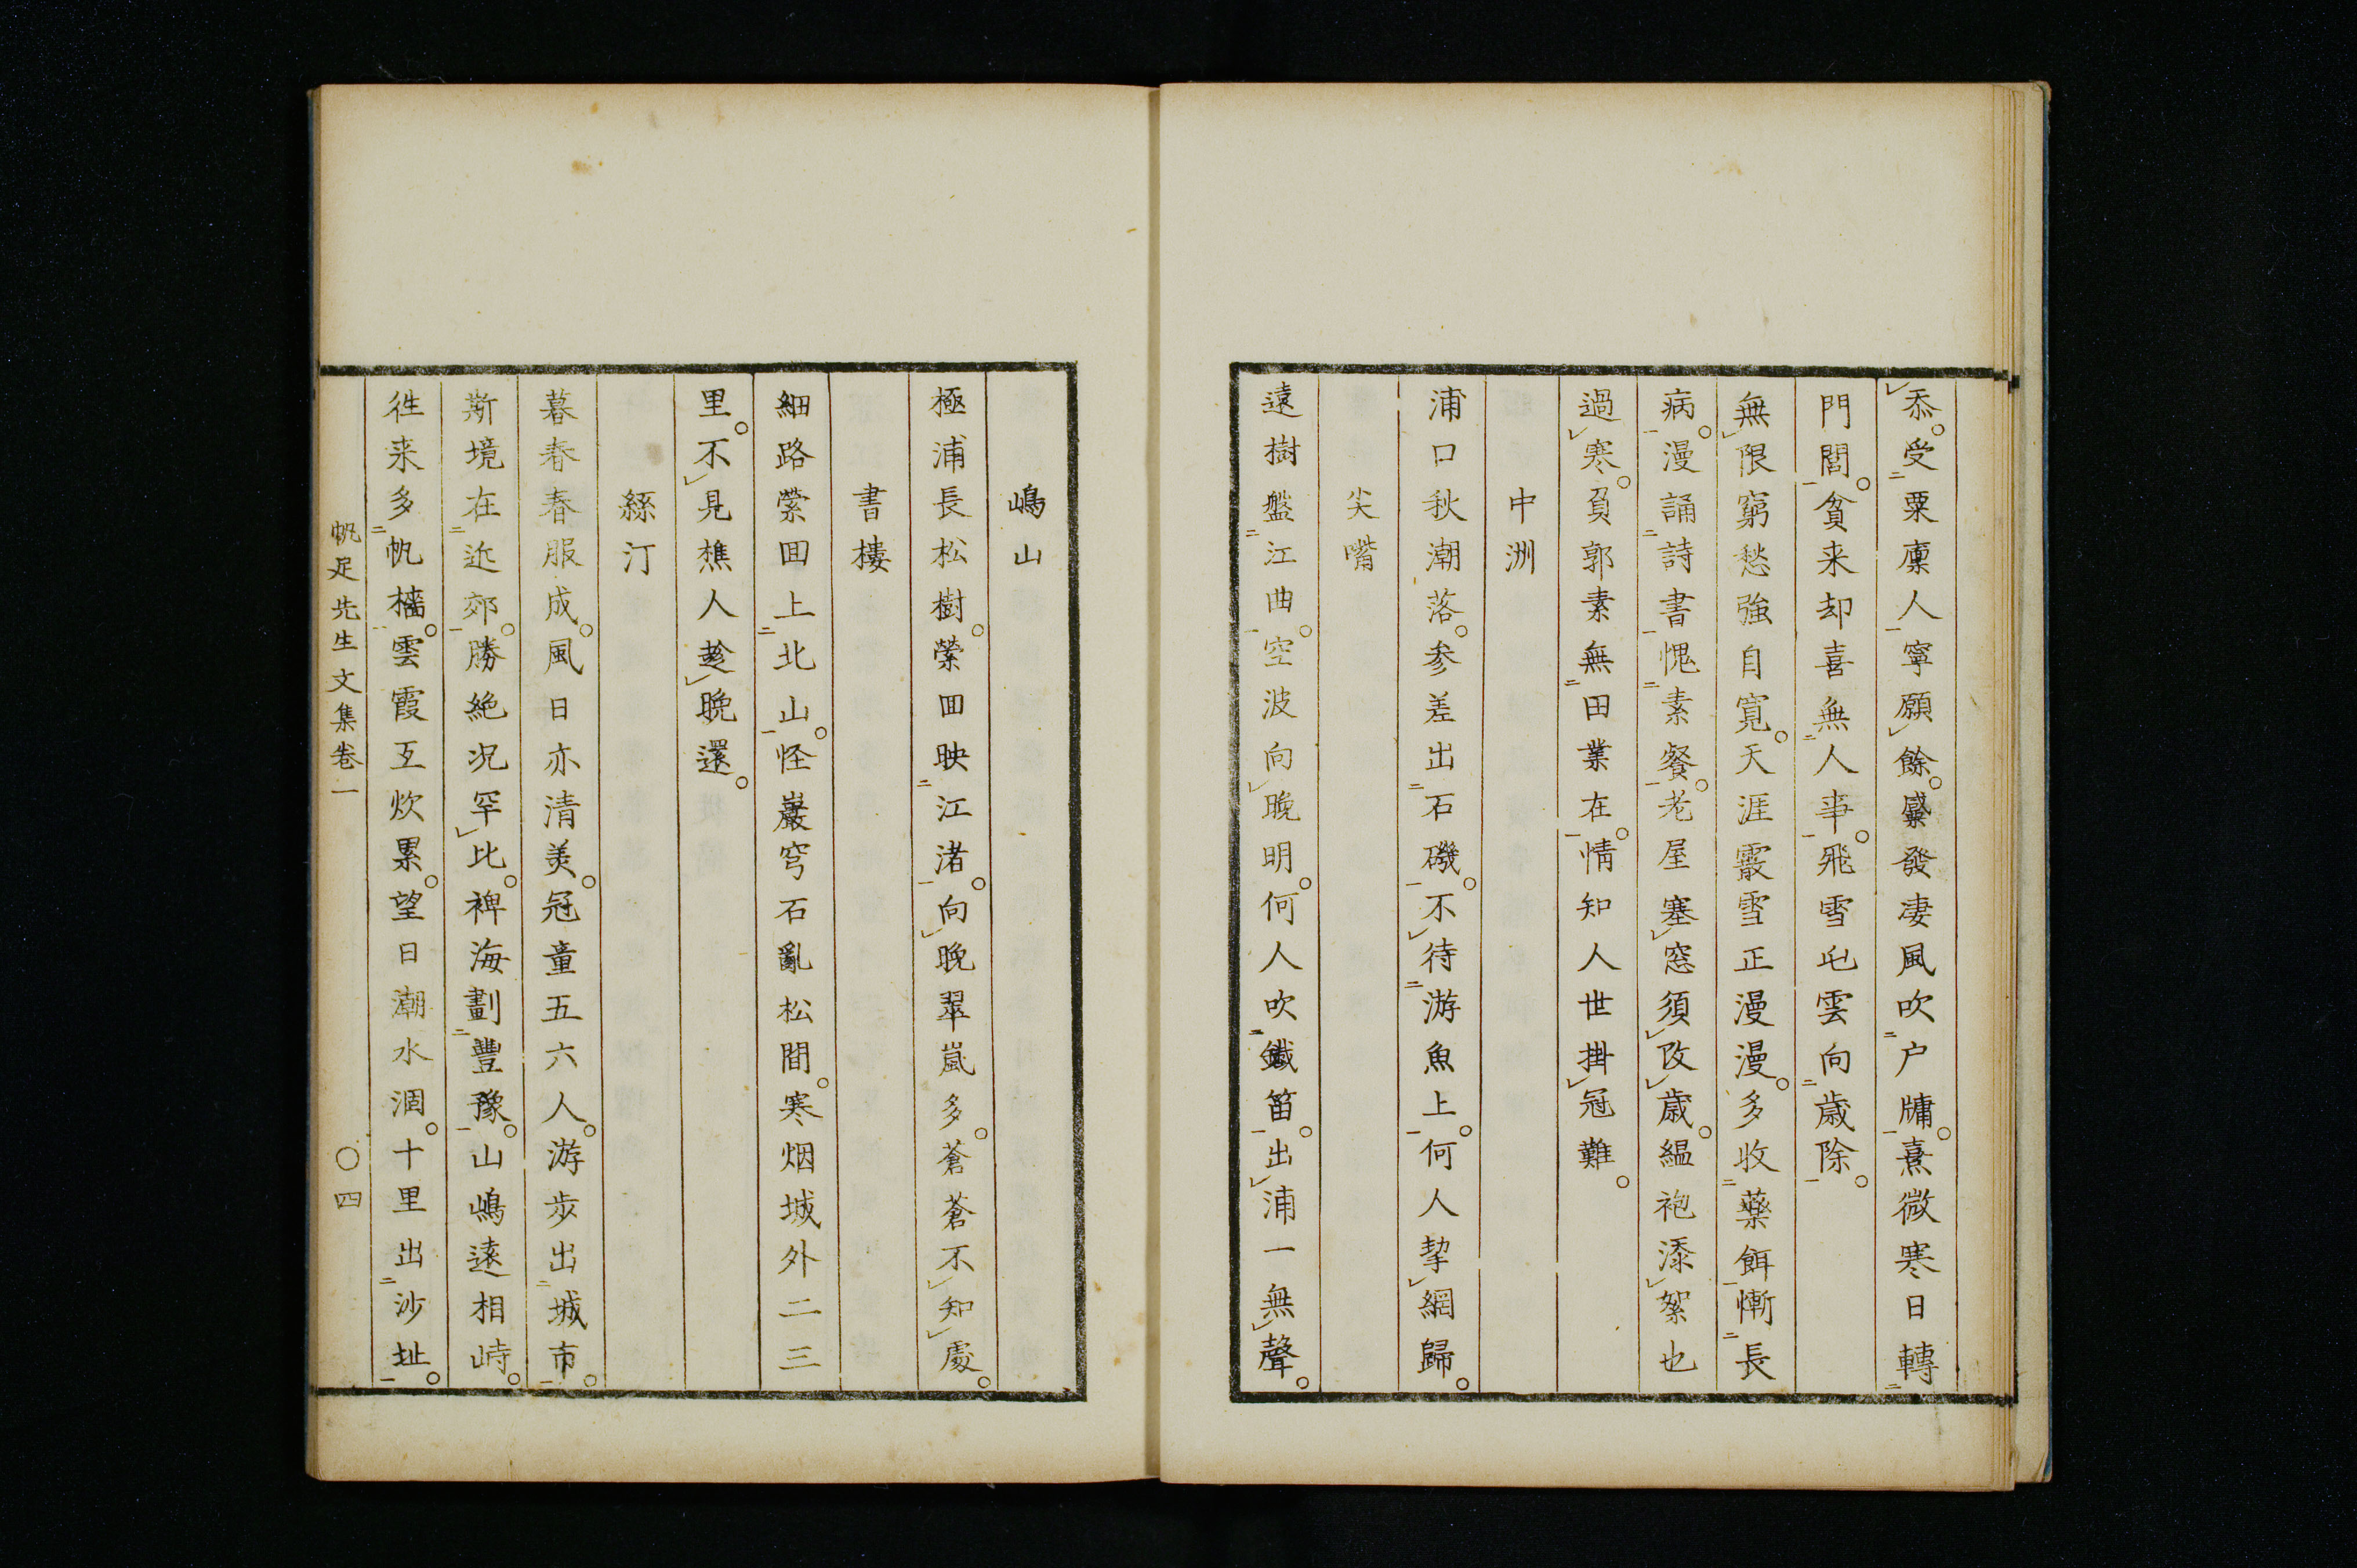 忝。受粟廩人寧願餘。觱發凄風吹户牗。熹微寒日轉
門閭。貧来却喜無人亊。飛雪屯雲向歳除。
無限窮愁強自寛。天涯霰雪正漫漫。多收藥餌慚長
病。漫誦詩書愧素餐。老屋塞窓須改歳。縕袍添絮也
過寒。負郭素無田業在。情知人世掛冠難。
中洲
浦口秋潮落。参差出石磯。不待游魚上。何人挈網歸。
尖嘴
遠樹盤江曲。空波向晚明。何人吹鐵笛。出浦一無聲。
嶋山
極浦長松樹。縈囬映江渚。向晚翠嵐多。蒼蒼不知處。
書樓
細路縈囬上北山。怪巖穹石亂松間。寒烟城外二三
里。不見樵人趁晚還。
絲汀
暮春春服成。風日亦清美。冠童五六人。游步出城市。
斯境在近郊。勝絶况罕比。裨海劃豐豫。山嶋遠相峙。
徃来多帆檣。雲霞互炊累。望日潮水涸。十里出沙址。
帆足先生文集巻一
〇四